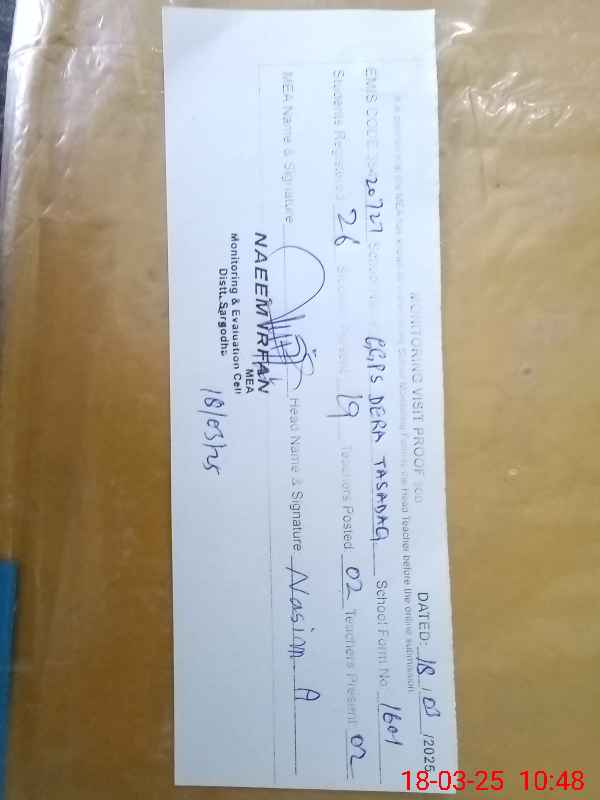 MONITORING VISIT PROOF DATED: 18 / 03 /2025
Head Teacher before the online submission.
EMIS CODE 384 20727 School Name GGPS DERA TASADAQ School Form No. 1601
Students Registered 26 Students Present 19 Teachers Posted: 02 Teachers Present: 02
MEA Name & Signature Head Name & Signature Nasim A
NAEEM IRFAN
MEA
Monitoring & Evaluation Cell
Distt. Sargodha
18/03/25
18-03-25 10:48